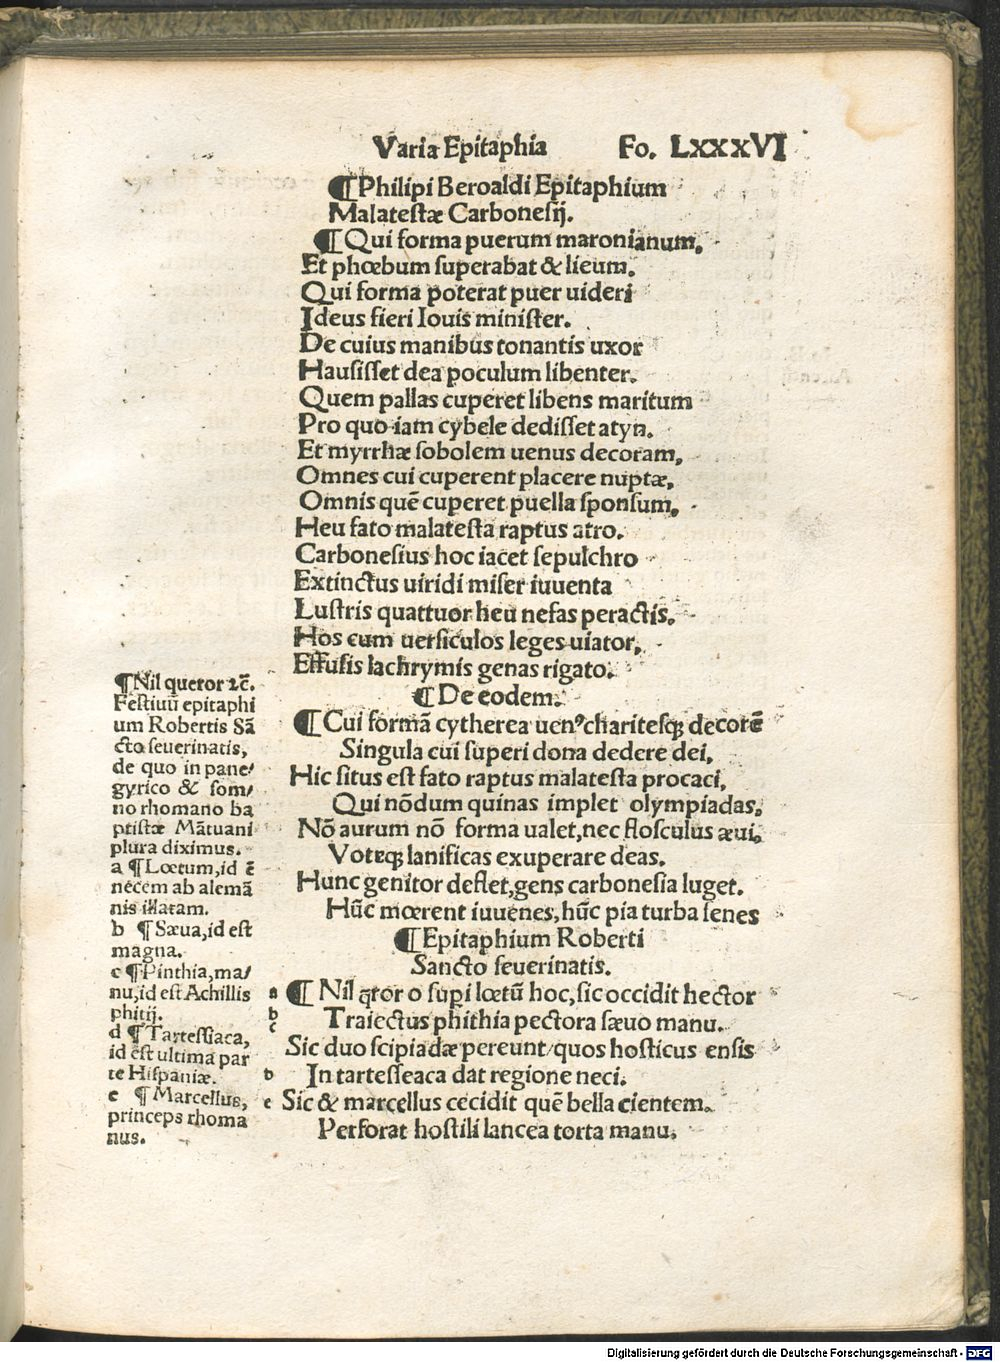 Varia Epitaphia Fo. LXXXVI
¶Philipi Beroaldi Epitaphium
Malatestæ Carbonesij.
¶Qui forma puerum maronianum,
Et phœbum superabat & lieum.
Qui forma poterat puer uideri
Ideus fieri Iouis minister.
De cuius manibus tonantis uxor
Hausisset dea poculum libenter.
Quem pallas cuperet libens maritum
Pro quo iam cybele dedisset atyn.
Et myrrhæ sobolem uenus decoram,
Omnes cui cuperent placere nuptæ,
Omnis quē cuperet puella sponsum,
Heu fato malatesta raptus atro.
Carbonesius hoc iacet sepulchro
Extinctus uiridi miser iuuenta
Lustris quattuor heu nefas peractis.
Hos cum uersiculos leges uiator,
Effusis lachrymis genas rigato.
¶De eodem.
¶Cui formā cytherea uenꝰ charitesqꝫ decorē
Singula cui superi dona dedere dei,
Hic situs est fato raptus malatesta procaci,
Qui nōdum quinas implet olympiadas.
Nō aurum nō forma ualet, nec flosculus æui.
Voteqꝫ lanificas exuperare deas.
Hunc genitor deflet, gens carbonesia luget.
Hūc mœrent iuuenes, hūc pia turba senes
¶Epitaphium Roberti
Sancto seuerinatis.
a ¶Nil q̄ror o supi lœtū hoc, sic occidit hector
b c Traiectus phithia pectora sæuo manu.
Sic duo scipiadæ pereunt/quos hosticus ensis
d In tartesseaca dat regione neci.
e Sic & marcellus cecidit quē bella cientem.
Perforat hostili lancea torta manu.
¶Nil queror ꝛc̄.
Festiuū epitaphi
um Robertis Sā
cto seuerinatis,
de quo in pane/
gyrico & som/
no rhomano ba
ptistæ Mātuani
plura diximus.
a ¶Lœtum, id ē
necem ab alemā
nis illatam.
b ¶Sæua, id est
magna.
c ¶Pinthia, ma/
nu, id est Achillis
phitij.
d ¶Tartessiaca,
id est ultima par
te Hispaniæ.
e ¶Marcellus,
princeps rhoma
nus.
Digitalisierung gefördert durch die Deutsche Forschungsgemeinschaft - DFG